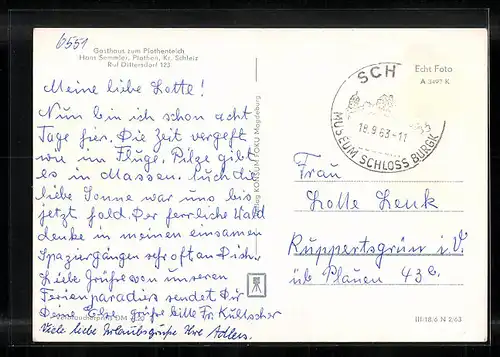 6551
Gasthaus zum Plothenteich
Hans Semmler, Plothen, Kr. Schleiz
Ruf Dittersdorf 123
Meine liebe Lotte!
Nun bin ich schon acht
Tage hier. Die Zeit vergeft
wie im Fluge. Pilze gibt
es in Massen. Auch die
liebe Sonne war uns bis
jetzt hold. Der herrliche Wald
denke in meinen einsamen
Spaziergängen sehr oft an Dich.
Liebe Grüße von unseren
Ferienparadies sendet Dir
Deine Else. grüße bitte Fr.
Viele liebe Urlaubsgrüße Ihre Adlers.
Verlag KONSUM FOKU Magdeburg
SCH
18.9.63-11
MUSEUM SCHLOSS BURGK
Echt Foto
A 3497 K
Frau
Lotte Lenk
Ruppertsgrün i. V.
üb Plauen 43c.
III-18.6 N 2/63